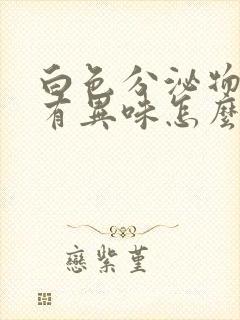 白色分泌物
有異味怎麼
戀紫堇